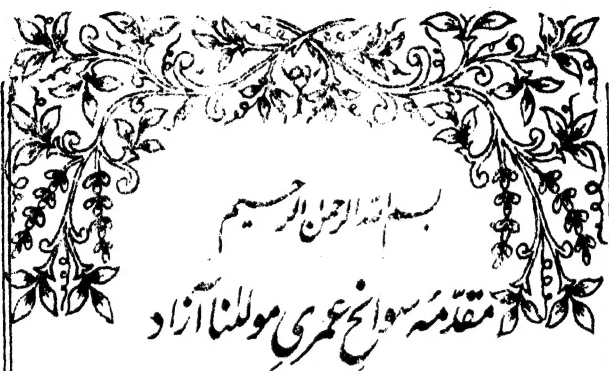 بسم اللہ الرحمن الرحیم
مقدّمۂ سوانح عمریِ مولٰنا آزاد